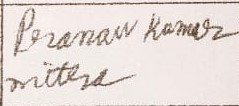 Pranaw Kumar
mittra